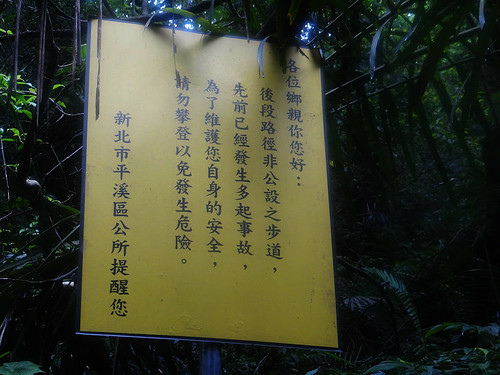 各位鄉親你您好：
後段路徑非公設之步道，
先前已經發生多起事故，
為了維護您自身的安全，
請勿攀登以免發生危險。
新北市平溪區公所提醒您